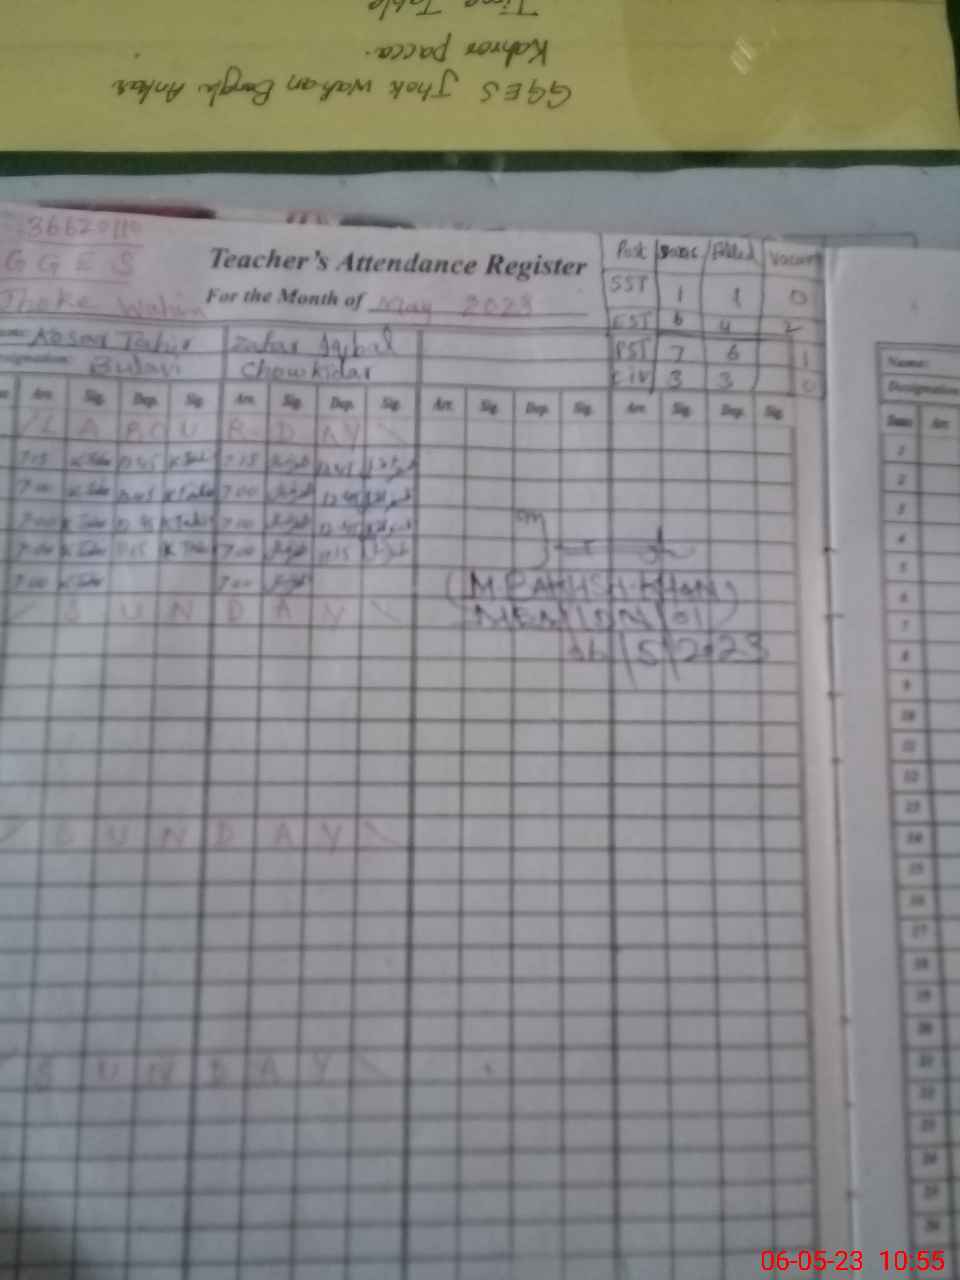 GGES Thok Wahan Bangla Ankar
Kahror pacca.
Time Table
36620110
GGES
Thoke Wahin
Teacher's Attendance Register
For the Month of May 2023
Post Sanc Filled Vacant
SST 1 1 0
EST 6 4 2
PST 7 6 1
C iv 3 3 0
Kosar Tahir Zafar Iqbal
Designation: Bulavi Chowkidar
Arr. Sig. Dep. Sig. Arr. Sig. Dep. Sig. Arr. Sig. Dep. Sig. Arr. Sig. Dep. Sig.
LABOUR DAY
7:15 K Tahir 12:45 K Tahir 7:15 12:45
7:00 K Tahir 12:45 K Tahir 7:00 12:45
7:00 K Tahir 12:45 K Tahir 7:00 12:45
7:00 K Tahir 12:15 K Tahir 7:00 12:15
7:00 K Tahir 7:00
SUNDAY
KHAN)
MEA
06/5/2023
SUNDAY
SUNDAY
Name:
Designation
Dates Arr.
1
2
3
4
5
6
7
8
9
10
11
12
13
14
15
16
17
18
19
20
21
22
23
24
25
26
06-05-23 10:55